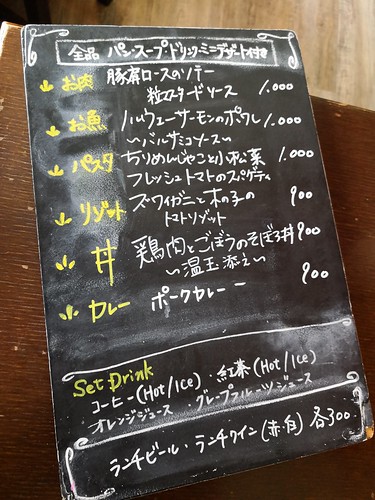 全品 パン・スープ・ドリンク・ミニデザート付き
お肉 豚肩ロースのソテー
粒マスタードソース 1.000
お魚 ノルウェーサーモンのポワレ 1.000
～バルサミコソース～
パスタ ちりめんじゃこと小松菜 1.000
フレッシュトマトのスパゲティ
リゾット ズワイガニと木の子の 900
トマトリゾット
丼 鶏肉とごぼうのそぼろ丼 900
～温玉添え～
カレー ポークカレー 900
Set Drink
コーヒー(Hot/Ice)・紅茶(Hot/Ice)
オレンジジュース・グレープフルーツジュース
ランチビール・ランチワイン(赤・白) 各300